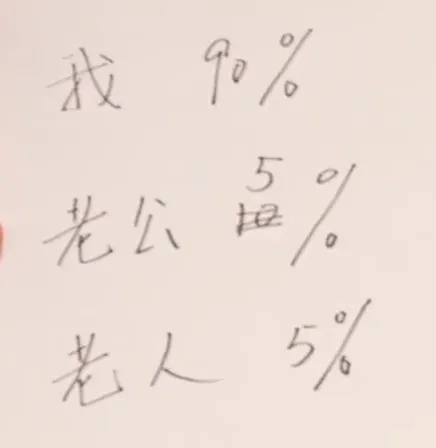 我 90%
老公 5%
老人 5%